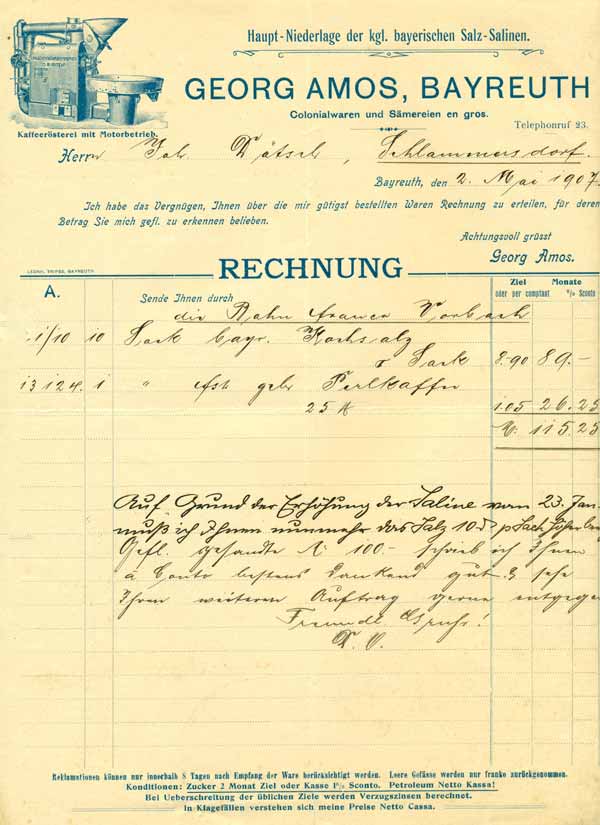 Haupt-Niederlage der kgl. bayerischen Salz-Salinen.
GEORG AMOS, BAYREUTH
Colonialwaren und Sämereien en gros.
Kaffeerösterei mit Motorbetrieb.
Telephonruf 23.
Herrn Joh. Dötsch, Schlammersdorf.
Bayreuth, den 2. Mai 1907.
Ich habe das Vergnügen, Ihnen über die mir gütigst bestellten Waren Rechnung zu erteilen, für deren
Betrag Sie mich gefl. zu erkennen belieben.
Achtungsvoll grüsst
Georg Amos.
LEONH. TRIPSS, BAYREUTH
RECHNUNG
Ziel Monate
oder per comptant % Sconto
A.
Sende Ihnen durch
die Bahn franco Vorbach
1/10 10 Sack bayr. Kochsalz
Sack 8.90 89.-
13124. 1 " gebr Perlkaffee
25 1.05 26.25
M. 115.25
Auf Grund der Erhöhung der Saline vom 23. Jan.
muß ich Ihnen nunmehr das Salz 10 p Sack höher
Gefl. gesandte M 100.- schrieb ich Ihnen
à Conto bestens dankend gut & sehe
Ihrem weiteren Auftrag gerne entgegen
Freundl. Gruß!
D. O.
Reklamationen können nur innerhalb 8 Tagen nach Empfang der Ware berücksichtigt werden. Leere Gefässe werden nur franko zurückgenommen.
Konditionen: Zucker 2 Monat Ziel oder Kasse 1% Sconto. Petroleum Netto Kassa!
Bei Ueberschreitung der üblichen Ziele werden Verzugszinsen berechnet.
In Klagefällen verstehen sich meine Preise Netto Cassa.